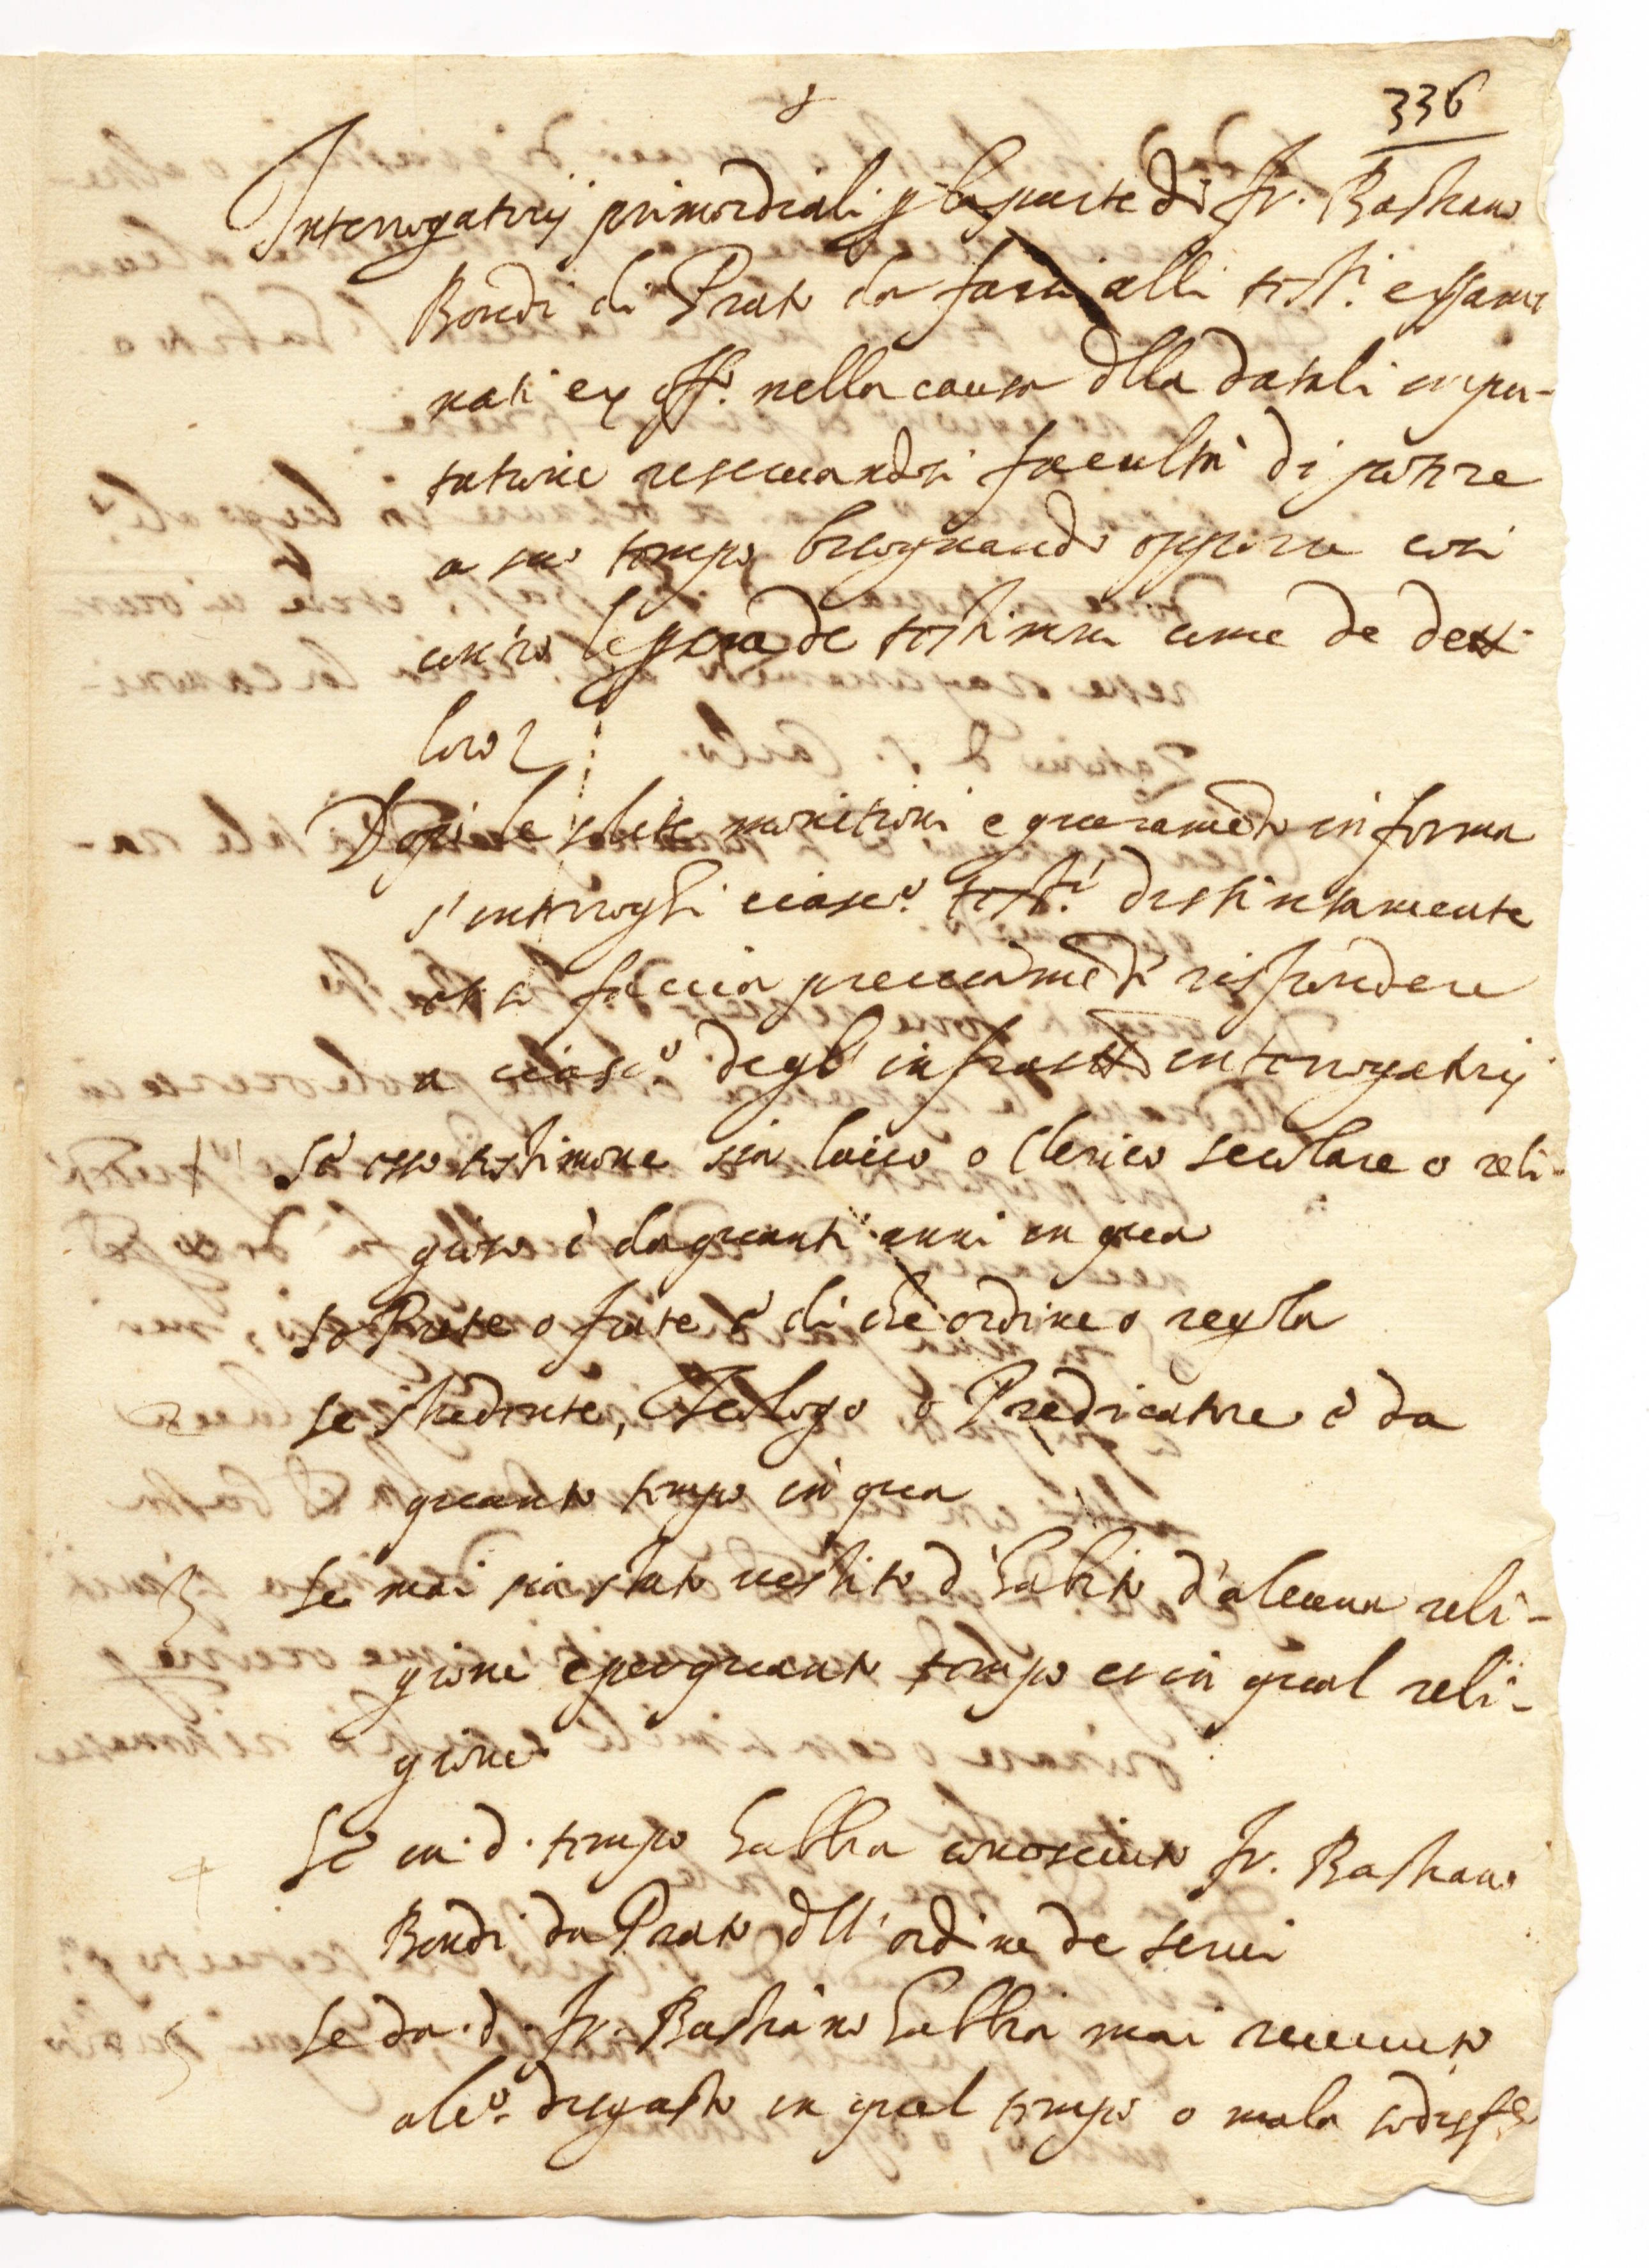 336
Interrogatorij primordiali p la parte di fr. Bastiano
Bondi di Prato da farsi alli test.i essami
nati ex off.o nella causa dlla datali impu-
tatione reservandosi facultà di potere
a suo tempo bisognando opporre così
contro le persone de testimoni come de detti
loro
Dopo le solite monitioni e giuramẽto in forma
s'interroghi ciasc.o test.e distintamente
et si faccia precisamẽte rispondere
a ciasc.o degl'infrastti interrogatorij
1 Se esso testimone sia laico o Clerico secolare o reli-
gioso è da quanti anni in qua
Se Prete o frate è di che ordine o regola
2 Se studente, Teologo o Predicatore è da
quanto tempo in qua
3 Se mai sia stato vestito d'habito d'alcuna reli-
gione e per quanto tempo et in qual reli-
gione
4 Se in d. tempo habbia conosciuto fr. Bastiano
Bondi da Prato dll'ordine de servi
5 Se da d. fr. Bastiano habbia mai ricevuto
alc.o disgusto in qual tempo o mala sodisf.e